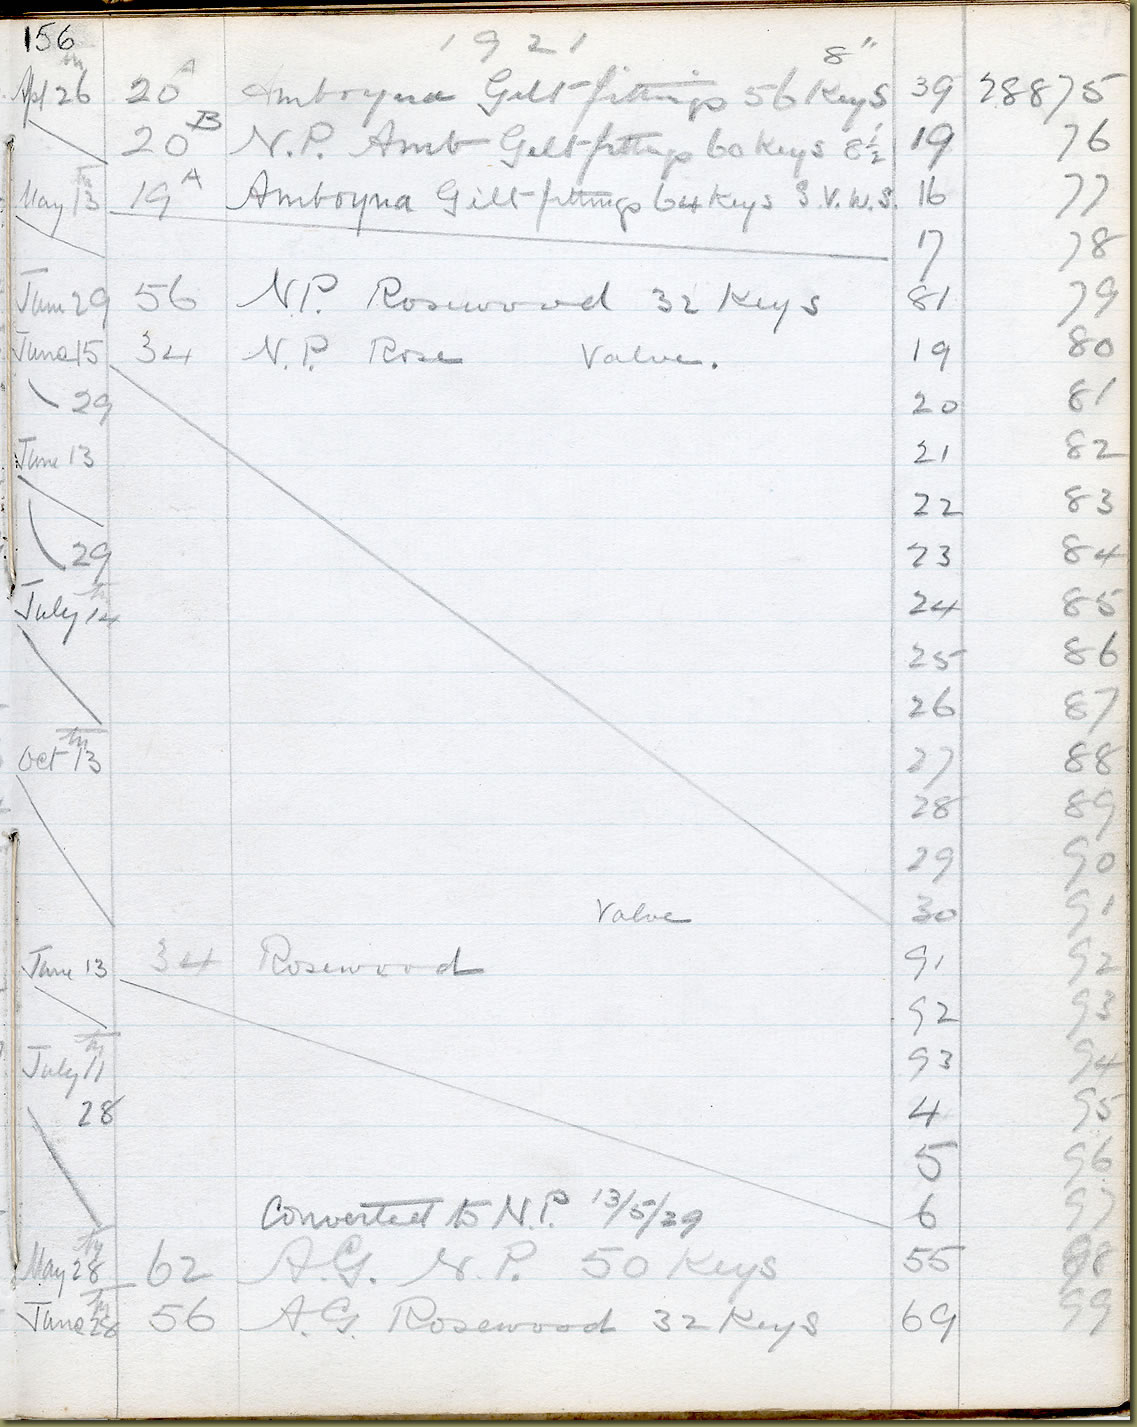 156 1921
Apl 26th 20A Amboyna Gilt fittings 56 Keys 8" 39 28875
20B N.P. Amb Gilt fittings 60 Keys 8½ 19 76
May 13th 19A Amboyna Gilt fittings 64 Keys S.V.W.S. 16 77
17 78
June 29 56 N.P. Rosewood 32 Keys 81 79
June 15 34 N.P. Rose Valve. 19 80
29 20 81
June 13 21 82
22 83
29 23 84
July 14th 24 85
25 86
26 87
Oct 13th 27 88
28 89
29 90
Valve 30 91
June 13 34 Rosewood 91 92
92 93
July 11th 93 94
28 4 95
5 96
Converted to N.P. 13/5/29 6 97
May 28th 62 A.G. N.P. 50 Keys 55 98
June 28th 56 A.G. Rosewood 32 Keys 69 99